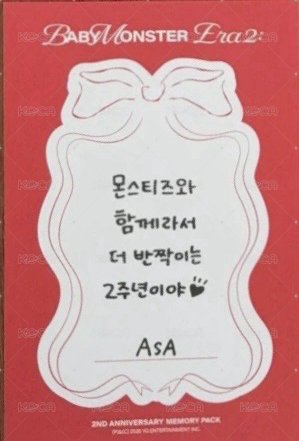 BABYMONSTER Era 2:
몬스티즈와
함께라서
더 반짝이는
2주년이야
ASA
2ND ANNIVERSARY MEMORY PACK
(P)&(C) 2026 YG ENTERTAINMENT INC.